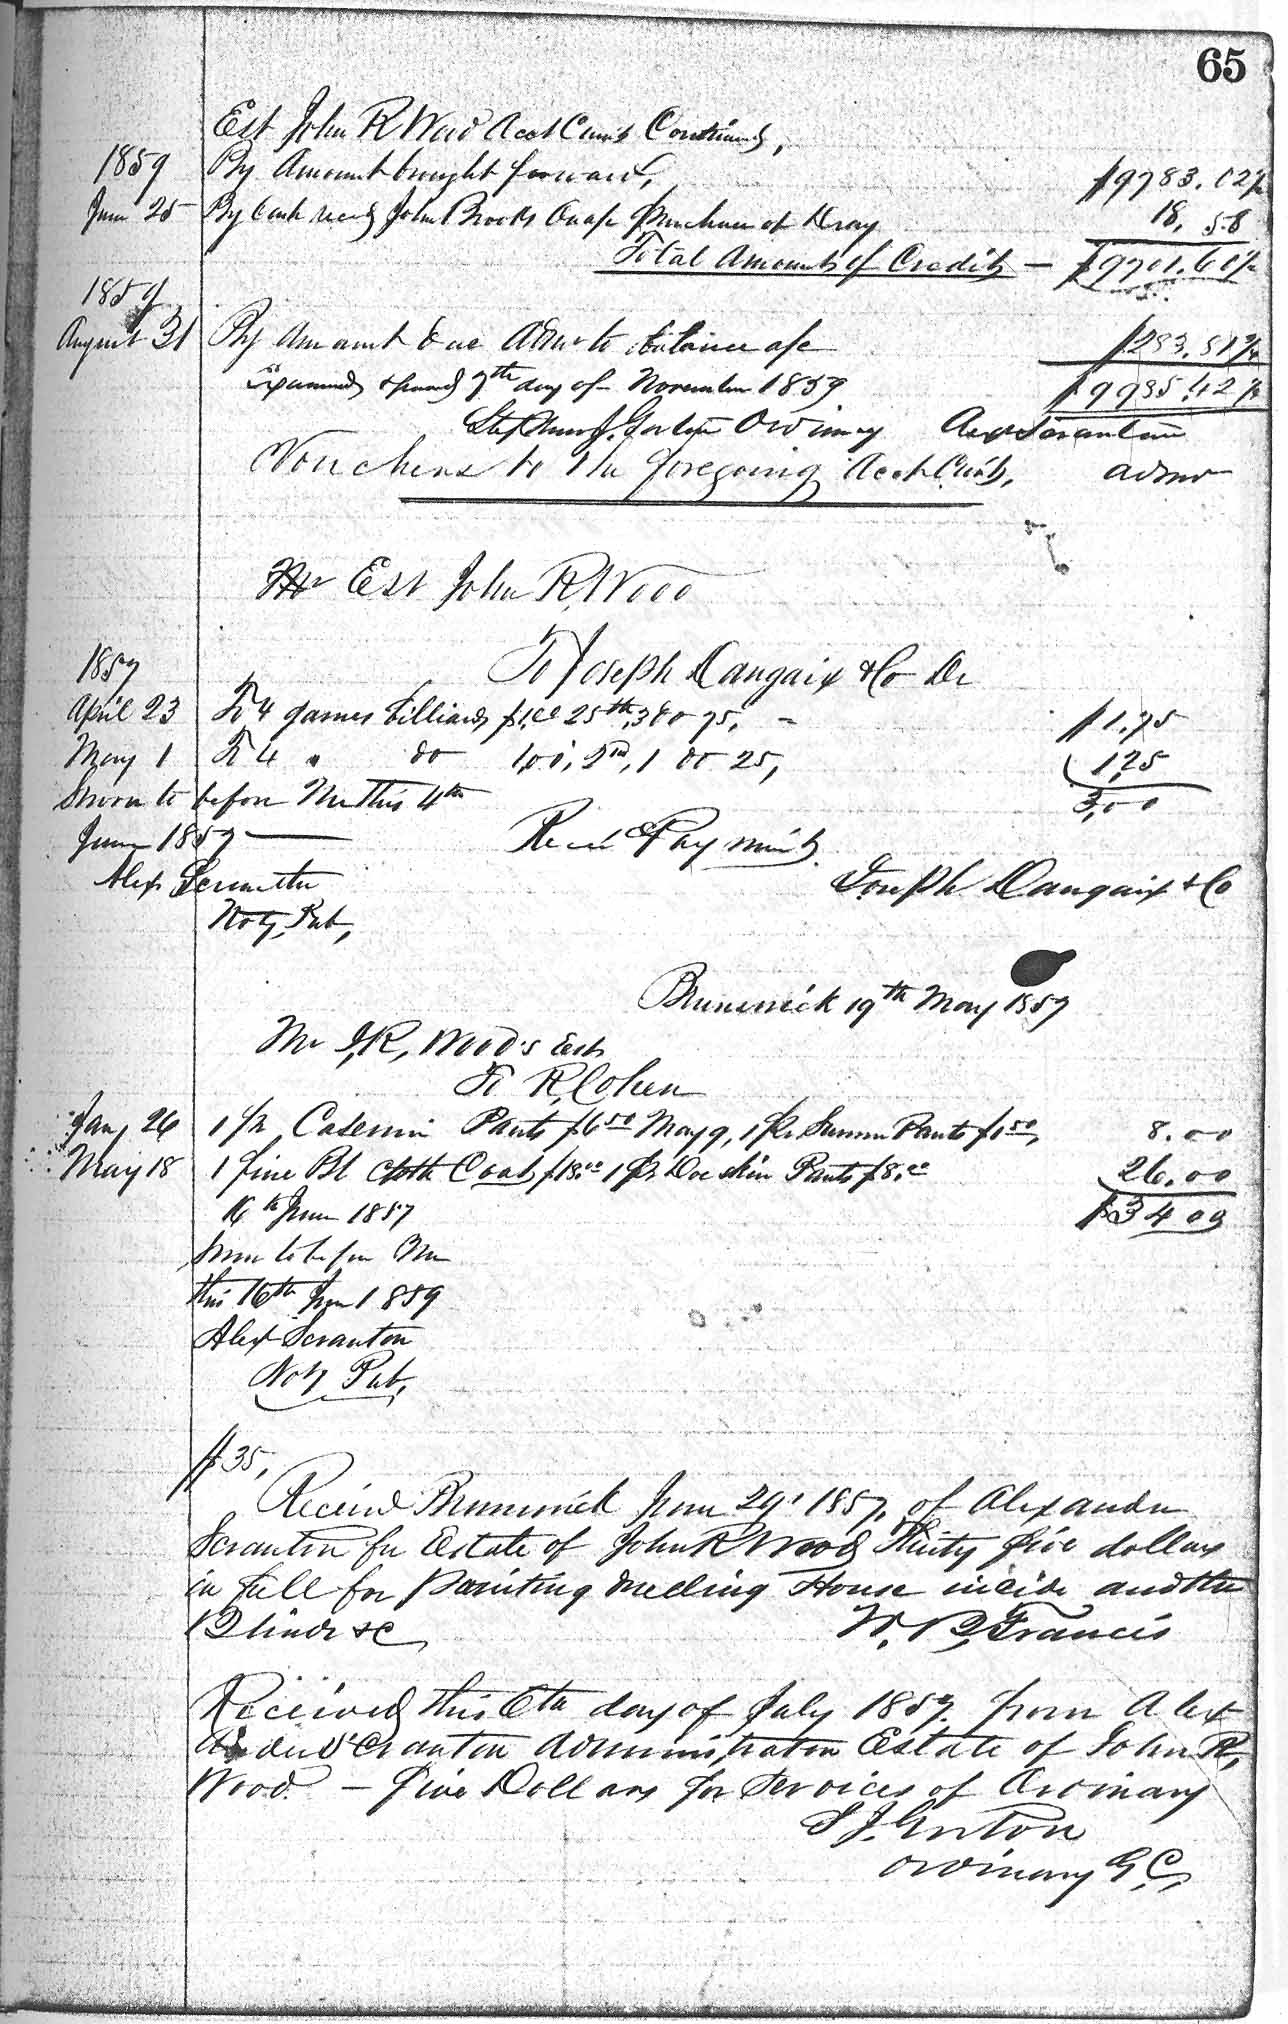 65
Est John R Wood Acct Curt Continued,
1859 By Amount brought forward, $9783.02½
June 25 By Cash recd John Brooks purchase of Dray 18.58
Total Amounts of Credits — $9701.60½
1859
August 31 By Amount due Admr to balance a/c $283.81¾
Examined & proved 7th day of November 1859
Stephen J. Gorton Ordinary Alex Scranton
Vouchers to the foregoing Acct Curt, Admr
Mr Est John R, Wood
To Joseph Dangaix & Co Dr
1857
April 23 To 4 games billiards 25th, 3 do 75, - $1,75
May 1 To 4 " do 1,00, 2nd, 1 do 25, 1,25
Sworn to before Me this 4th 3,00
June 1857 —— Recd Payment
Alex Scranton Joseph Dangaix & Co
Noty, Pub,
Brunswick 19th May 1857
Mr J,R, Wood's Est
To R, Cohen
Jany 26 1 pr Pants $6 50 May 9, 1 pr Summer Pants $1 50, 8.00
May 18 1 fine Bl Cloth Coat $18.00 1 pr Doe skin Pants $8.00 26.00
16th June 1857 $34 00
Sworn to before Me
this 16th June 1859
Alex Scranton
Noty Pub,
$35,
Received Brunswick June 29, 1857, of Alexander
Scranton for Estate of John R Wood Thirty five dollars
in full for painting dwelling House inside and the
Blinds &c W. B, Francis
Received this 6th day of July 1857. from Alex
ander Scranton Administrator Estate of John R,
Wood. — five Dollars for services of Ordinary
S J. Gorton
Ordinary G, C,